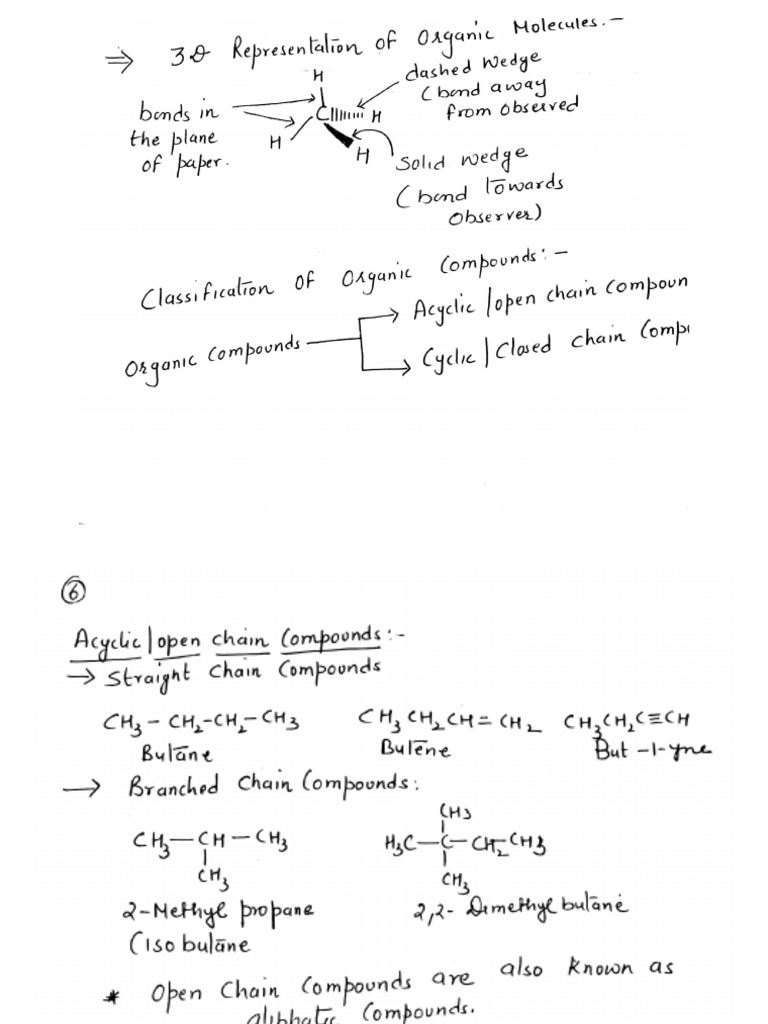 ⇒ 3D Representation of Organic Molecules:-
H
dashed wedge
(bond away
from observed
bonds in
the plane
of paper.
C H
H
H
Solid wedge
(bond Towards
Observer)
Classification of Organic Compounds:-
Organic Compounds
→ Acyclic | open chain Compoun
→ Cyclic | Closed chain Comp
⑥
Acyclic | open chain Compounds:-
→ Straight Chain Compounds
CH₃ – CH₂–CH₂–CH₃ CH₃CH₂CH=CH₂ CH₃CH₂C≡CH
Butane Butene But-1-yne
→ Branched Chain Compounds:
CH₃
CH₃—CH—CH₃ H₃C—C—CH₂–CH₃
CH₃ CH₃
2-Methyl propane 2,2-Dimethyl butane
(Iso butane
* Open Chain Compounds are also known as
aliphatic Compounds.